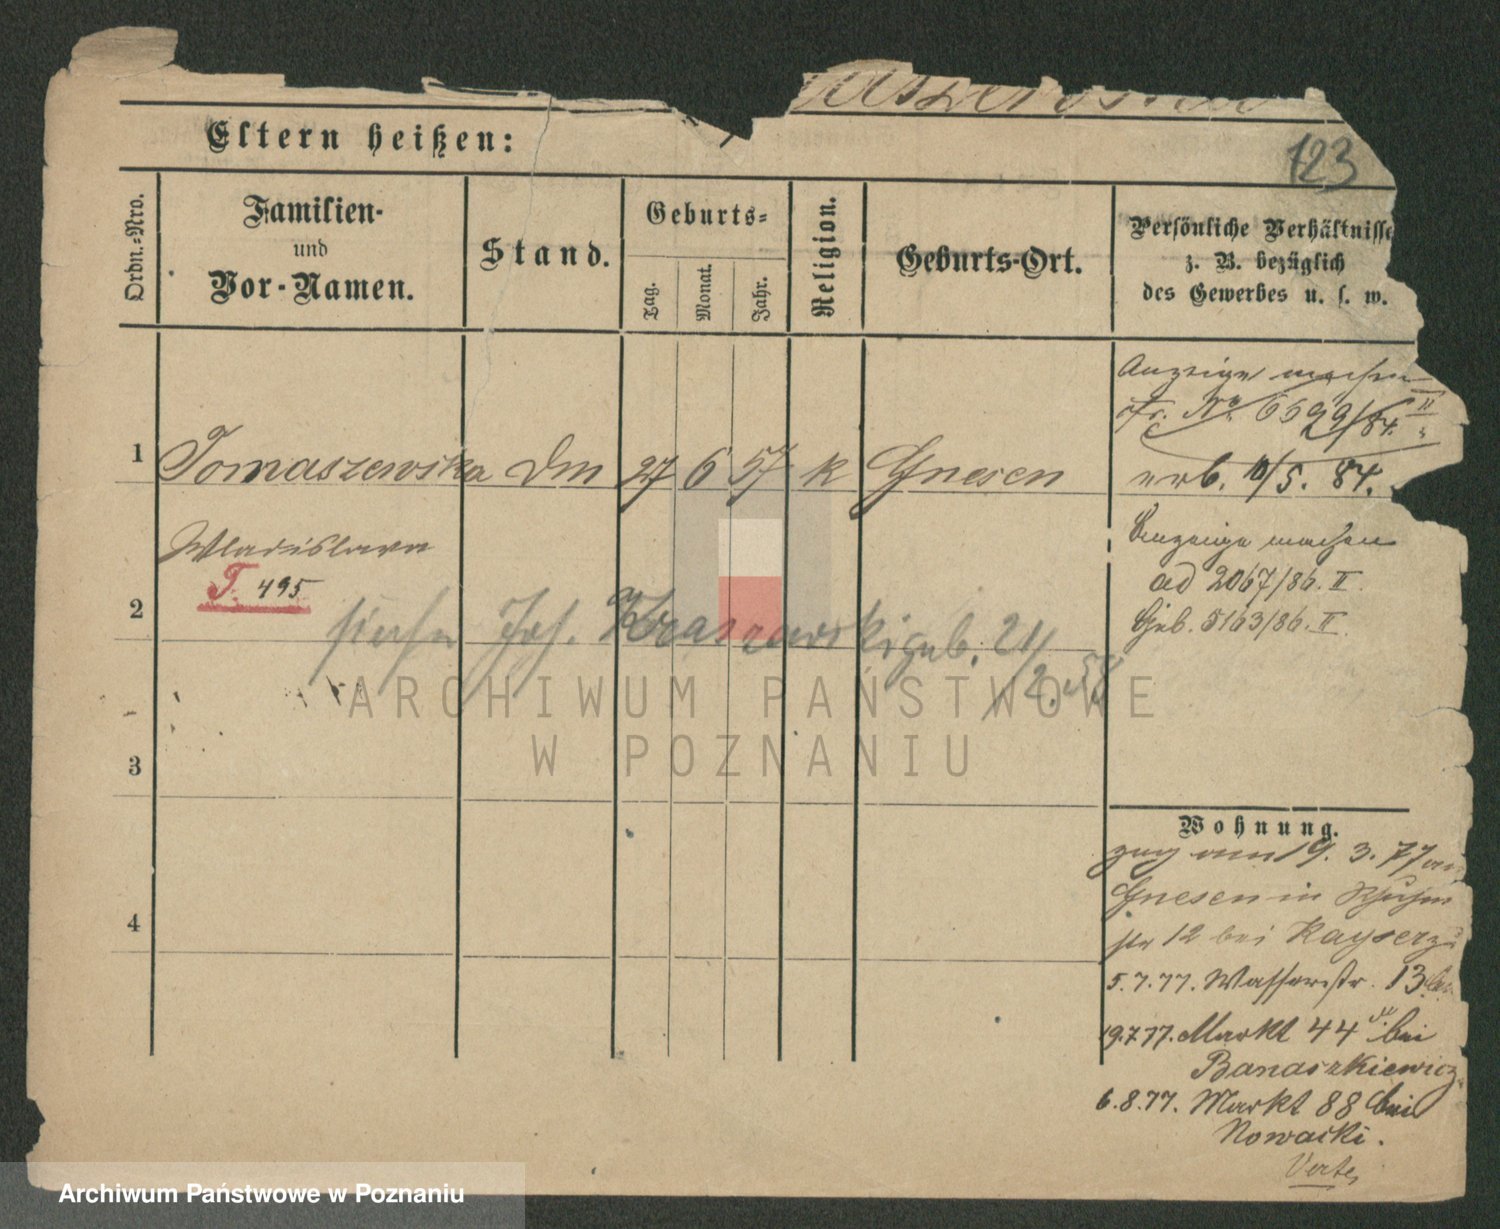 123
Eltern heißen:
Ordn.-Nro.
Familien-
und
Vor-Namen.
Stand.
Geburts-
Tag.
Monat.
Jahr.
Religion.
Geburts-Ort.
Persönliche Verhältnisse
z. B. bezüglich
des Gewerbes u. s. w.
Anzeige machen
No 6599/84. II
1 Tomaszewska Dm 27 6 57 k Gnesen
erb. 10/5. 84.
Wladislawa
T. 495
Anzeige machen
ad 2067/86. II.
Geb. 5163/86. II.
2
siehe Joh. Kraszewski geb. 24/2. 58
ARCHIWUM PAŃSTWOWE
W POZNANIU
3
4
Wohnung.
zug am 19. 3. 77 aus
Gnesen in
str 12 bei Kayser
5. 7. 77. Wasserstr. 13
19.7.77. Markt 44 bei
Banaszkiewicz
6. 8. 77. Markt 88 bei
Nowacki.
Verte
Archiwum Państwowe w Poznaniu